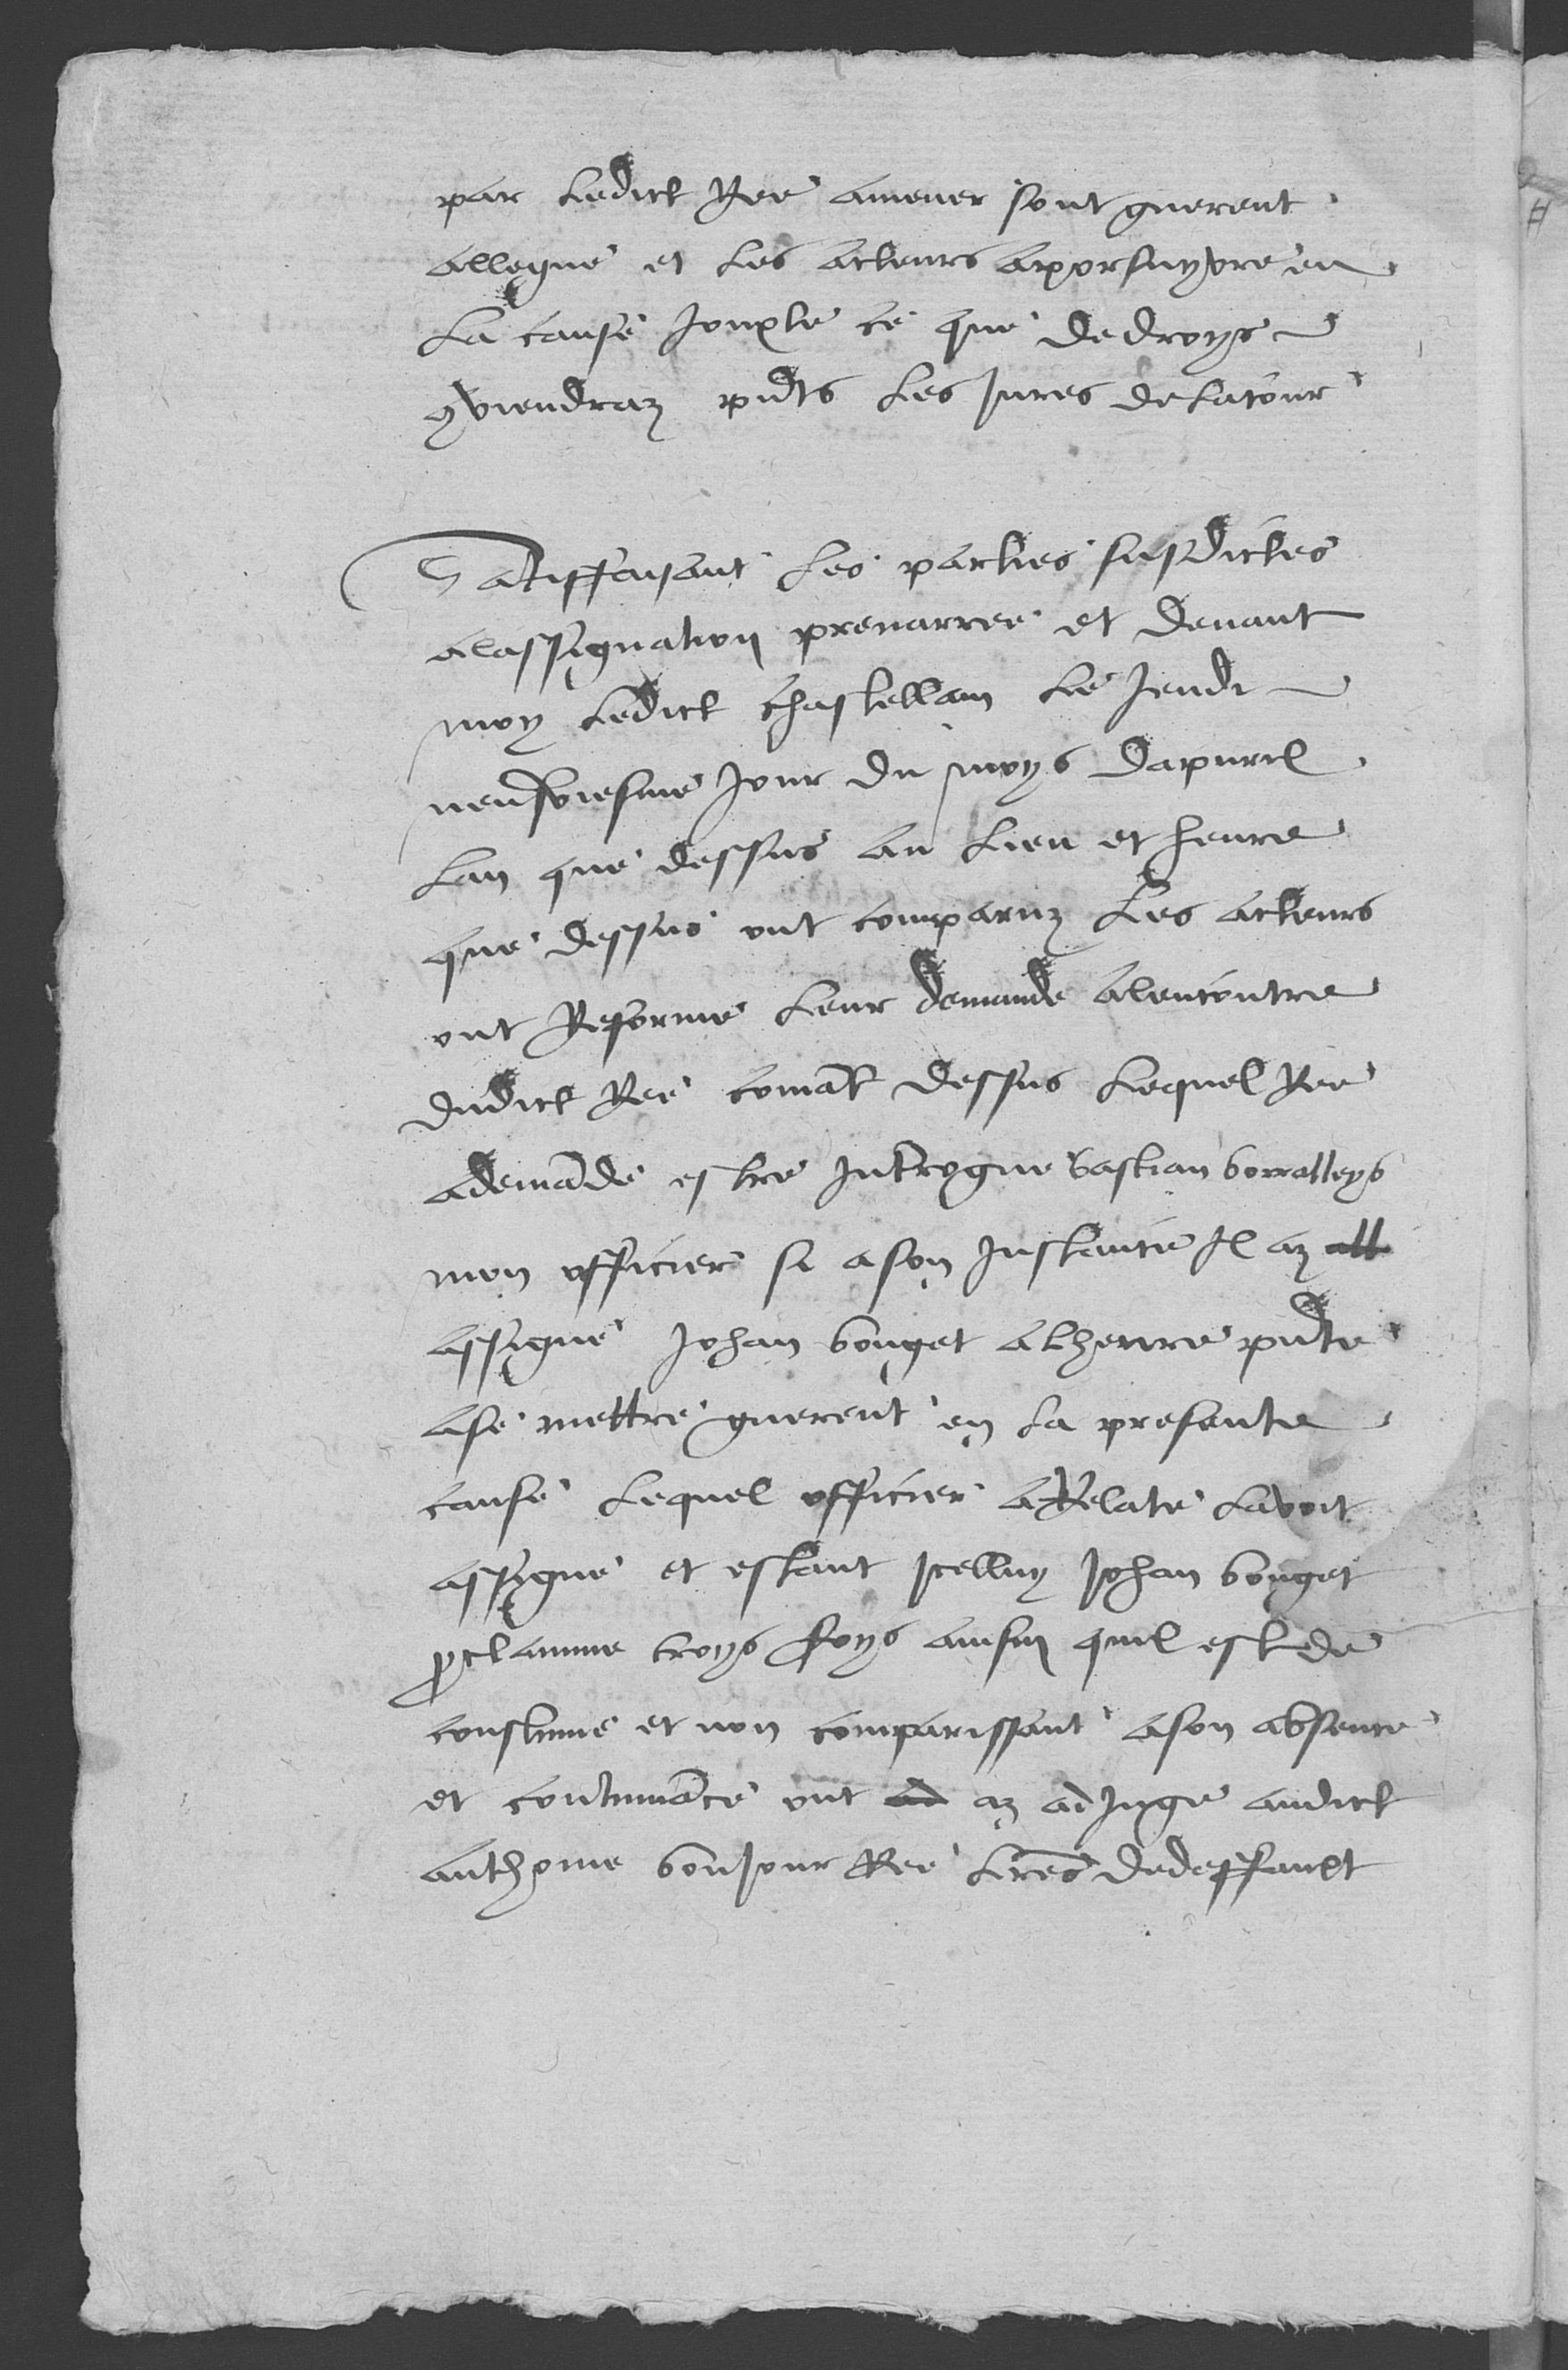 par ledict Ree amener sont guerent
allegue et les acteurs aporsuyvre en
la cause Jouxte ce que dedroys
9viendraz pnts les Jures delacour
Satiffaisant les parties susdictes
alassignation prenarree et devant
moy ledict chastellain le Jeudi
neufviesme Jour du moys dapuril
lan que dessus au lieu et heure
que dessus ont comparuz les acteurs
ont Reforme leur demande alencontre
dudict Ree comāt dessus lequel Ree
ademāde estre Introgue bastian borralleys
mon officier si ason Instance Il az
assigne Johan bouget alheure pnte
ase mettre guerent en la presente
cause lequel officier aRelate lavoit
assigne et estant Icelluy Johan bouget
proclamme troys foys ainsin quil est de
coustume et non comparissant ason absence
et contumāce ont az adJuge audict
anthoine bonJour Ree lres dedeffault